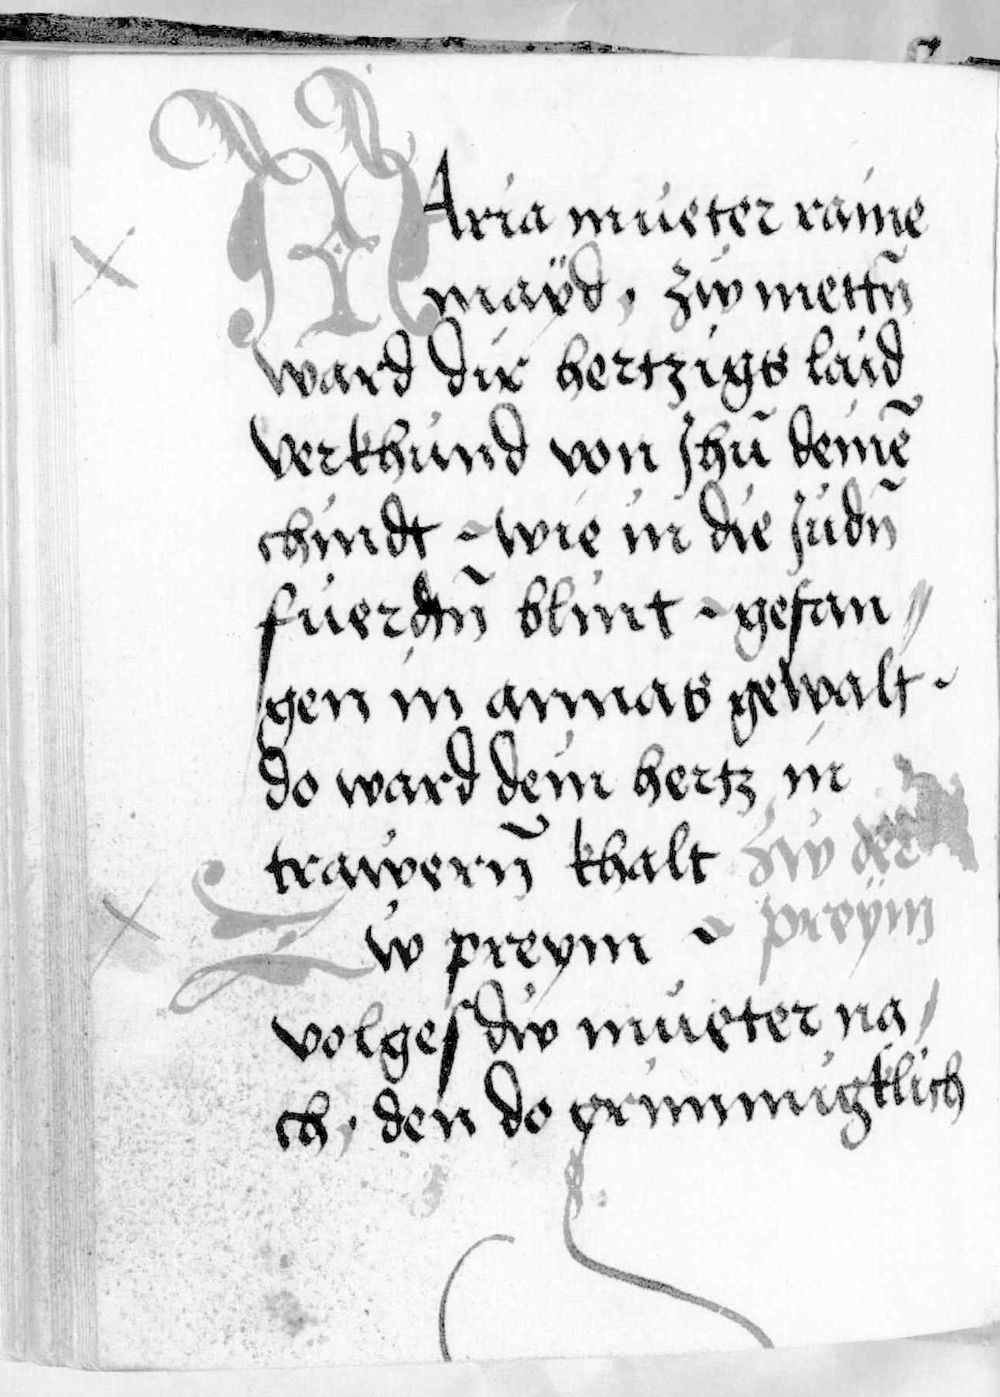 MAria mueter raine
maÿd, zw mettn̄
ward dir hertzigs laid
verkhund von Jhū deinē
chindt ~ wie in die Judn̄
fuerdtn̄ blint ~ gefan //
gen in annas gewalt ~
do ward dein hertz in
trawern̄ khalt zw der
Zw preym ~ preÿm
volgest dw mueter na /
ch, den do grimmigklich